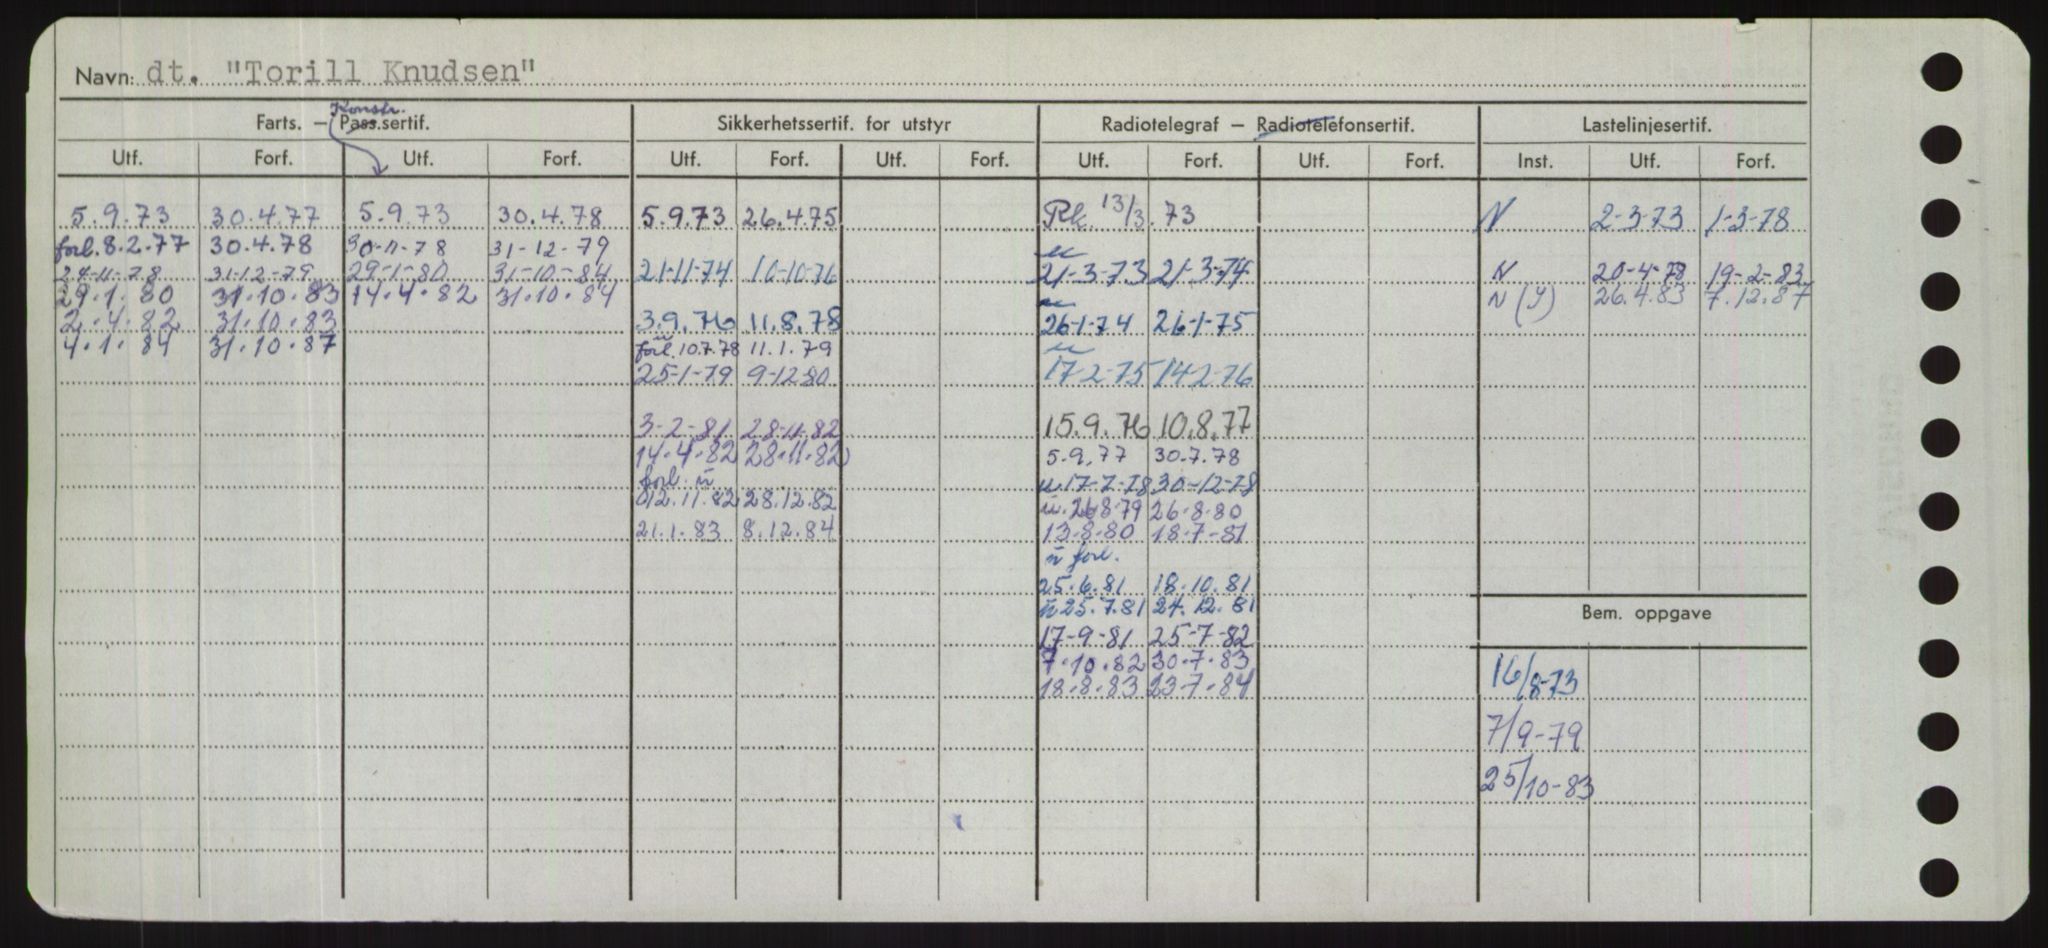 Navn: dt. "Torill Knudsen"
Konstr.
Farts. — Pass.sertif. Sikkerhetssertif. for utstyr Radiotelegraf — Radiotelefonsertif. Lastelinjesertif.
Utf. Forf. Utf. Forf. Utf. Forf. Utf. Forf. Utf. Forf. Utf. Forf. Inst. Utf. Forf.
5.9.73 30.4.77 5.9.73 30.4.78 5.9.73 26.4.75 Rk. 13/3.73 N 2-3-73 1-3-78
forl. 8.2.77 30.4.78 30-11-78 31-12-79
24-11-78 31-12-79 29-1-80 31-10-84 21-11-74 10-10-76 21-3-73 21-3-74 N 20-4-78 19-2-83
29.1.80 31.10.83 14.4.82 31.10.84 N (Y) 26.4.83 7.12.87
2.4.82 31.10.83 3.9.76 11.8.78 26-1-74 26-1-75
4.1.84 31.10.87 forl. 10.7.78 11.1.79
25-1-79 9-12-80 17-2-75 14-2-76
3-2-81 28-11-82 15.9.76 10.8.77
14.4.82 28.11.82 5.9.77 30.7.78
forl. ü ü 17-7-78 30-12-78
12.11.82 28.12.82 ü 26-8-79 26-8-80
21.1.83 8.12.84 13-8-80 18-7-81
ü forl.
25.6.81 18.10.81
ü 25.7.81 24.12.81
Bem. oppgave
17-9-81 25-7-82
7.10.82 30.7.83 16/8-73
18.8.83 23.7.84
7/9-79
25/10-83